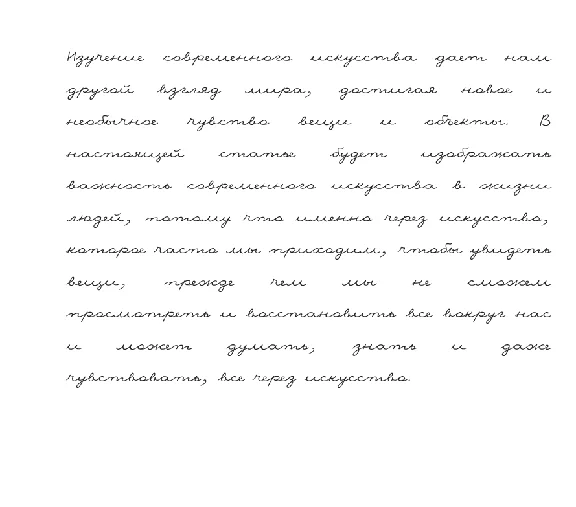 Изучение современного искусства дает нам
другой взгляд мира, достигая новое и
необычное чувство вещи и объекты. В
настоящей статье будет изображать
важность современного искусства в жизни
людей, потому что именно через искусство,
которое часто мы приходим, чтобы увидеть
вещи, прежде чем мы не сможем
просмотреть и восстановить все вокруг нас
и может думать, знать и даже
чувствовать, все через искусство.